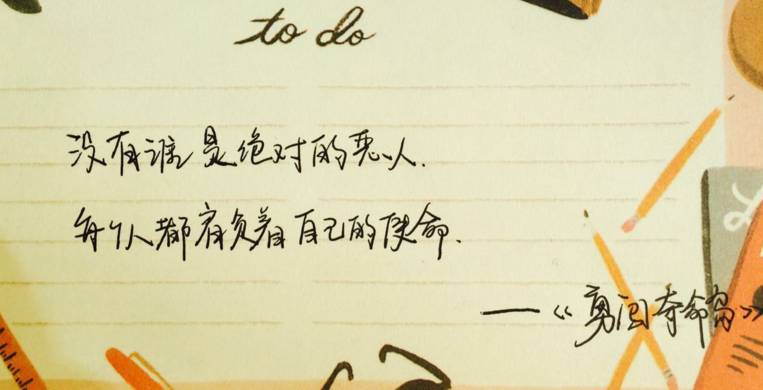 to do
没有谁是绝对的恶人.
每个人都有负着自己的使命.
——《勇闯夺命岛》